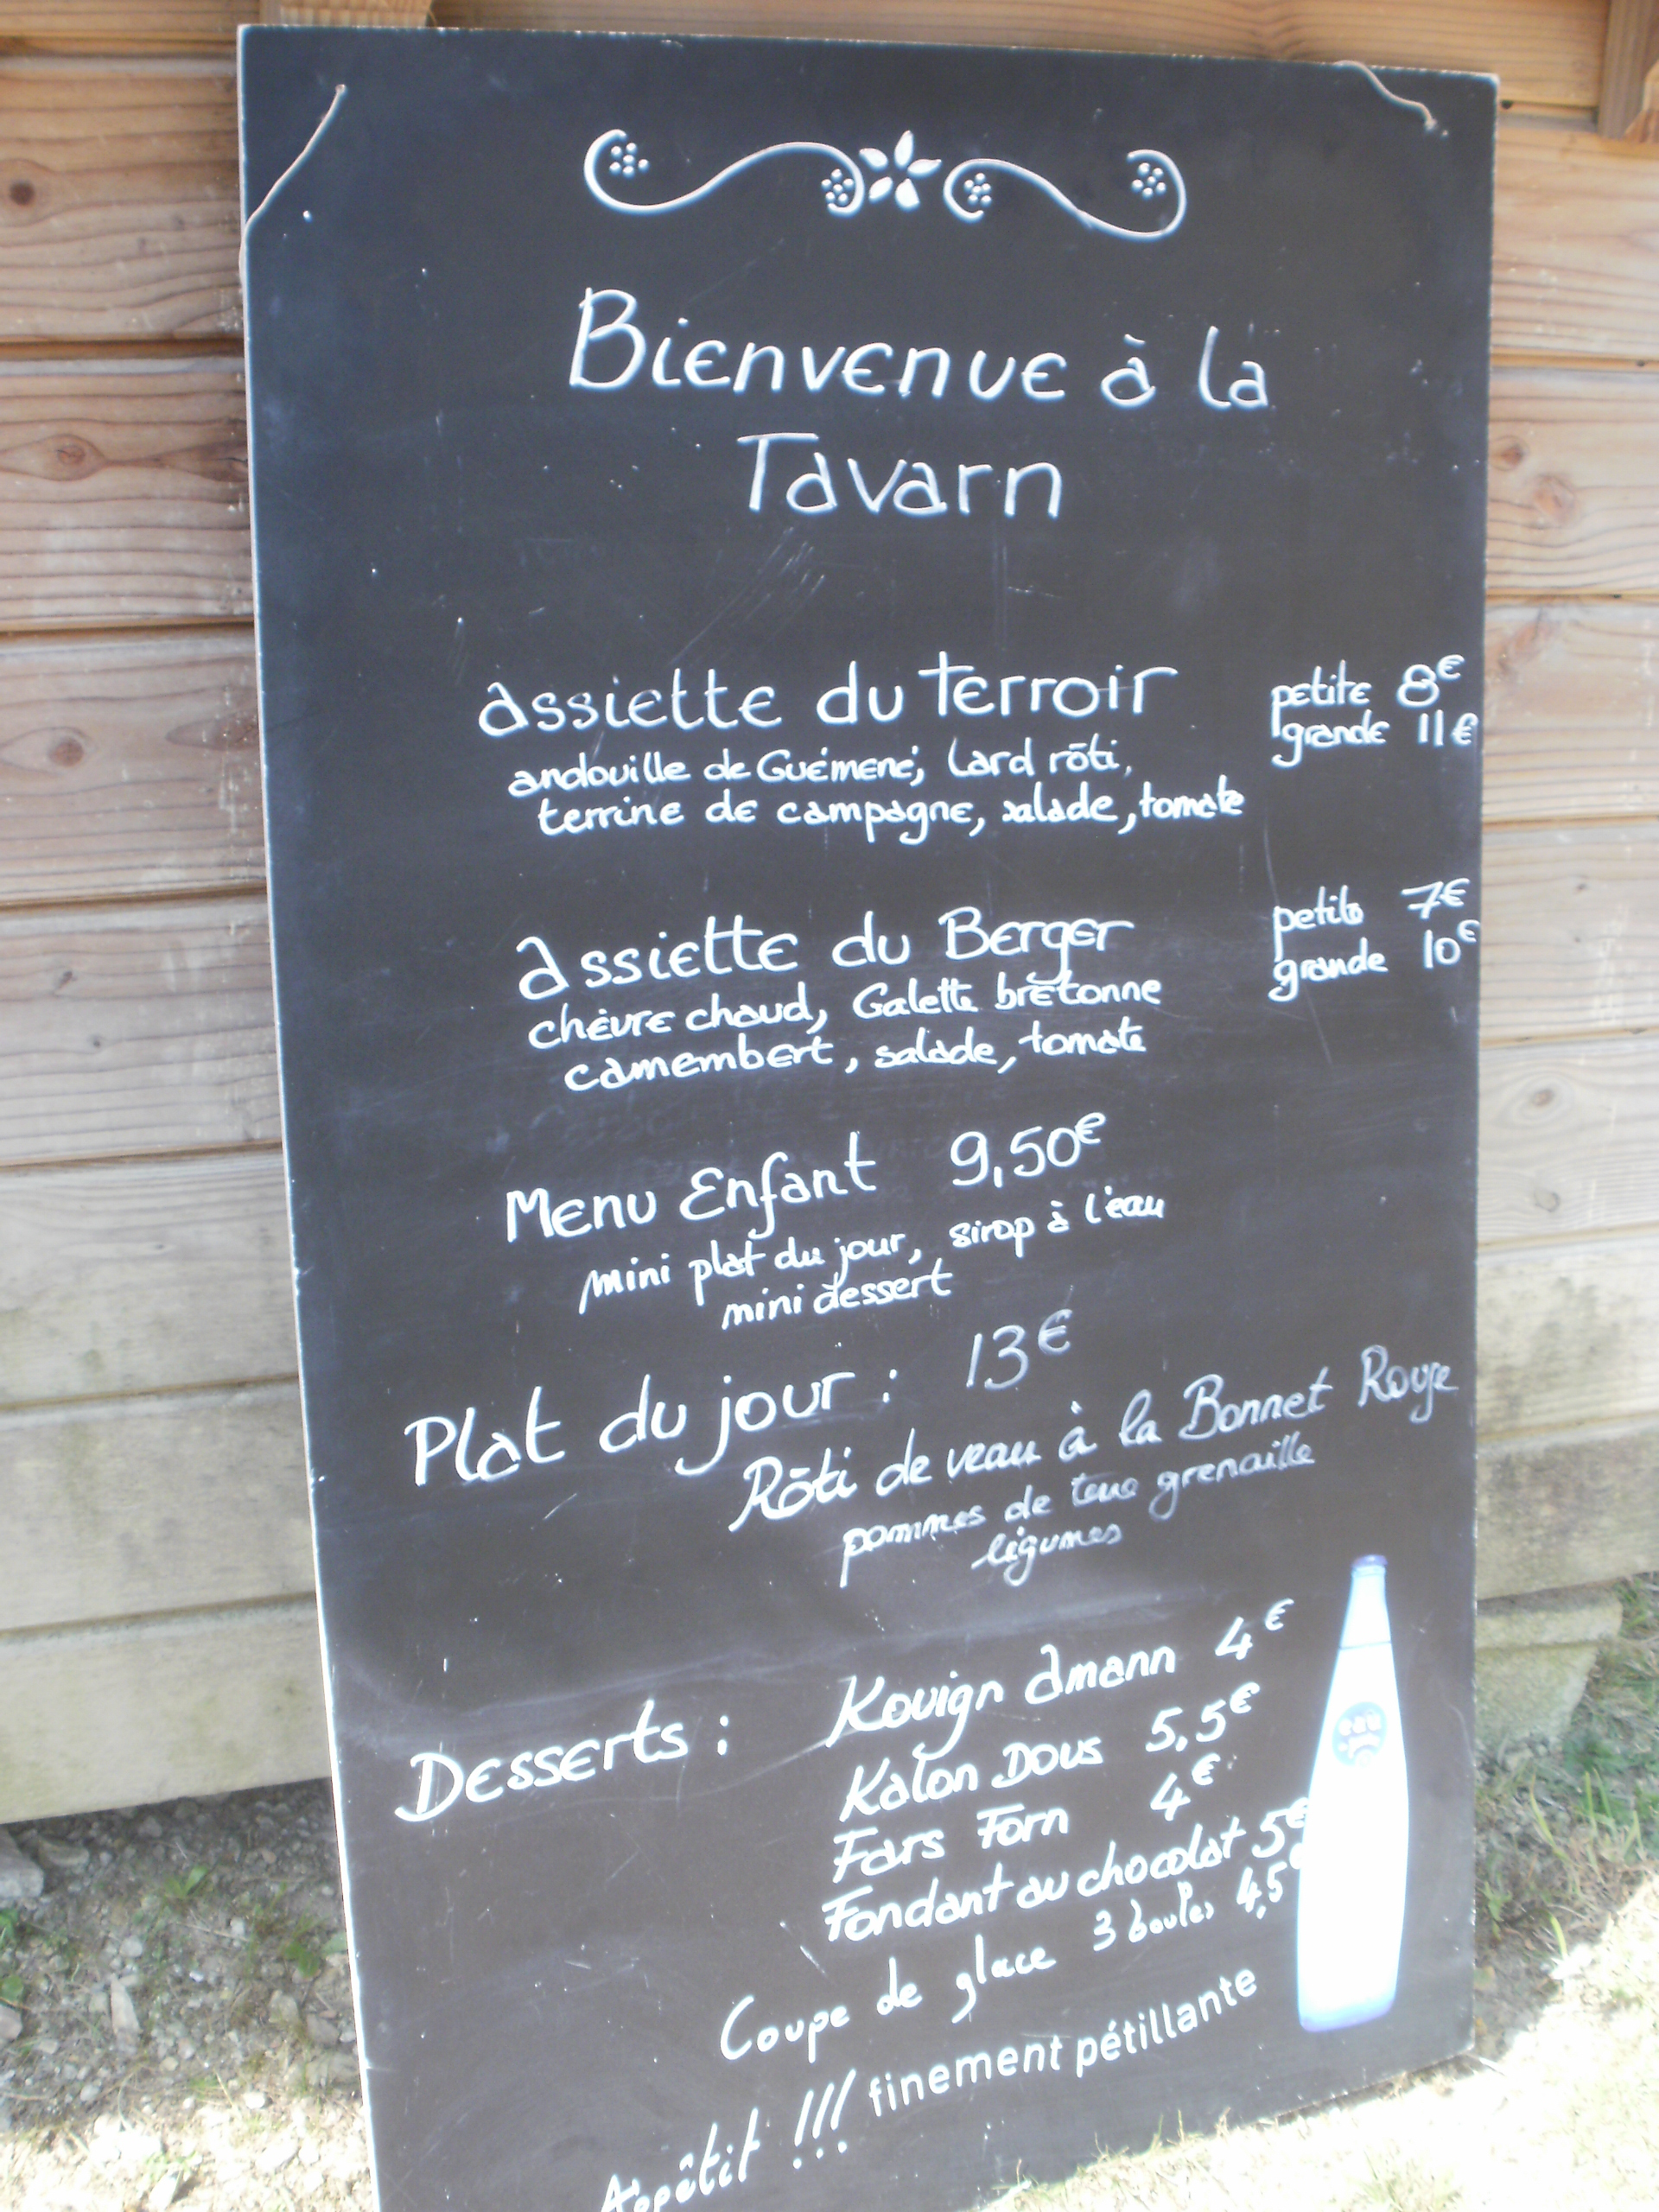 Bienvenue à la
Tavarn
assiette du Terroir petite 8€
grande 11€
andouille de Guémené, lard rôti,
terrine de campagne, salade, tomate
assiette du Berger petite 7€
grande 10€
chèvre chaud, Galette bretonne
camembert, salade, tomate
Menu Enfant 9,50€
mini plat du jour, sirop à l'eau
mini dessert
Plat du jour : 13€
Rôti de veau à la Bonnet Rouge
pommes de terre grenaille
légumes
Desserts : Kouign amann 4€
Kalon Dous 5,5€
Fars Forn 4€
Fondant au chocolat 5€
Coupe de glace 3 boules 4,5€
finement pétillante
Appétit !!!
eau